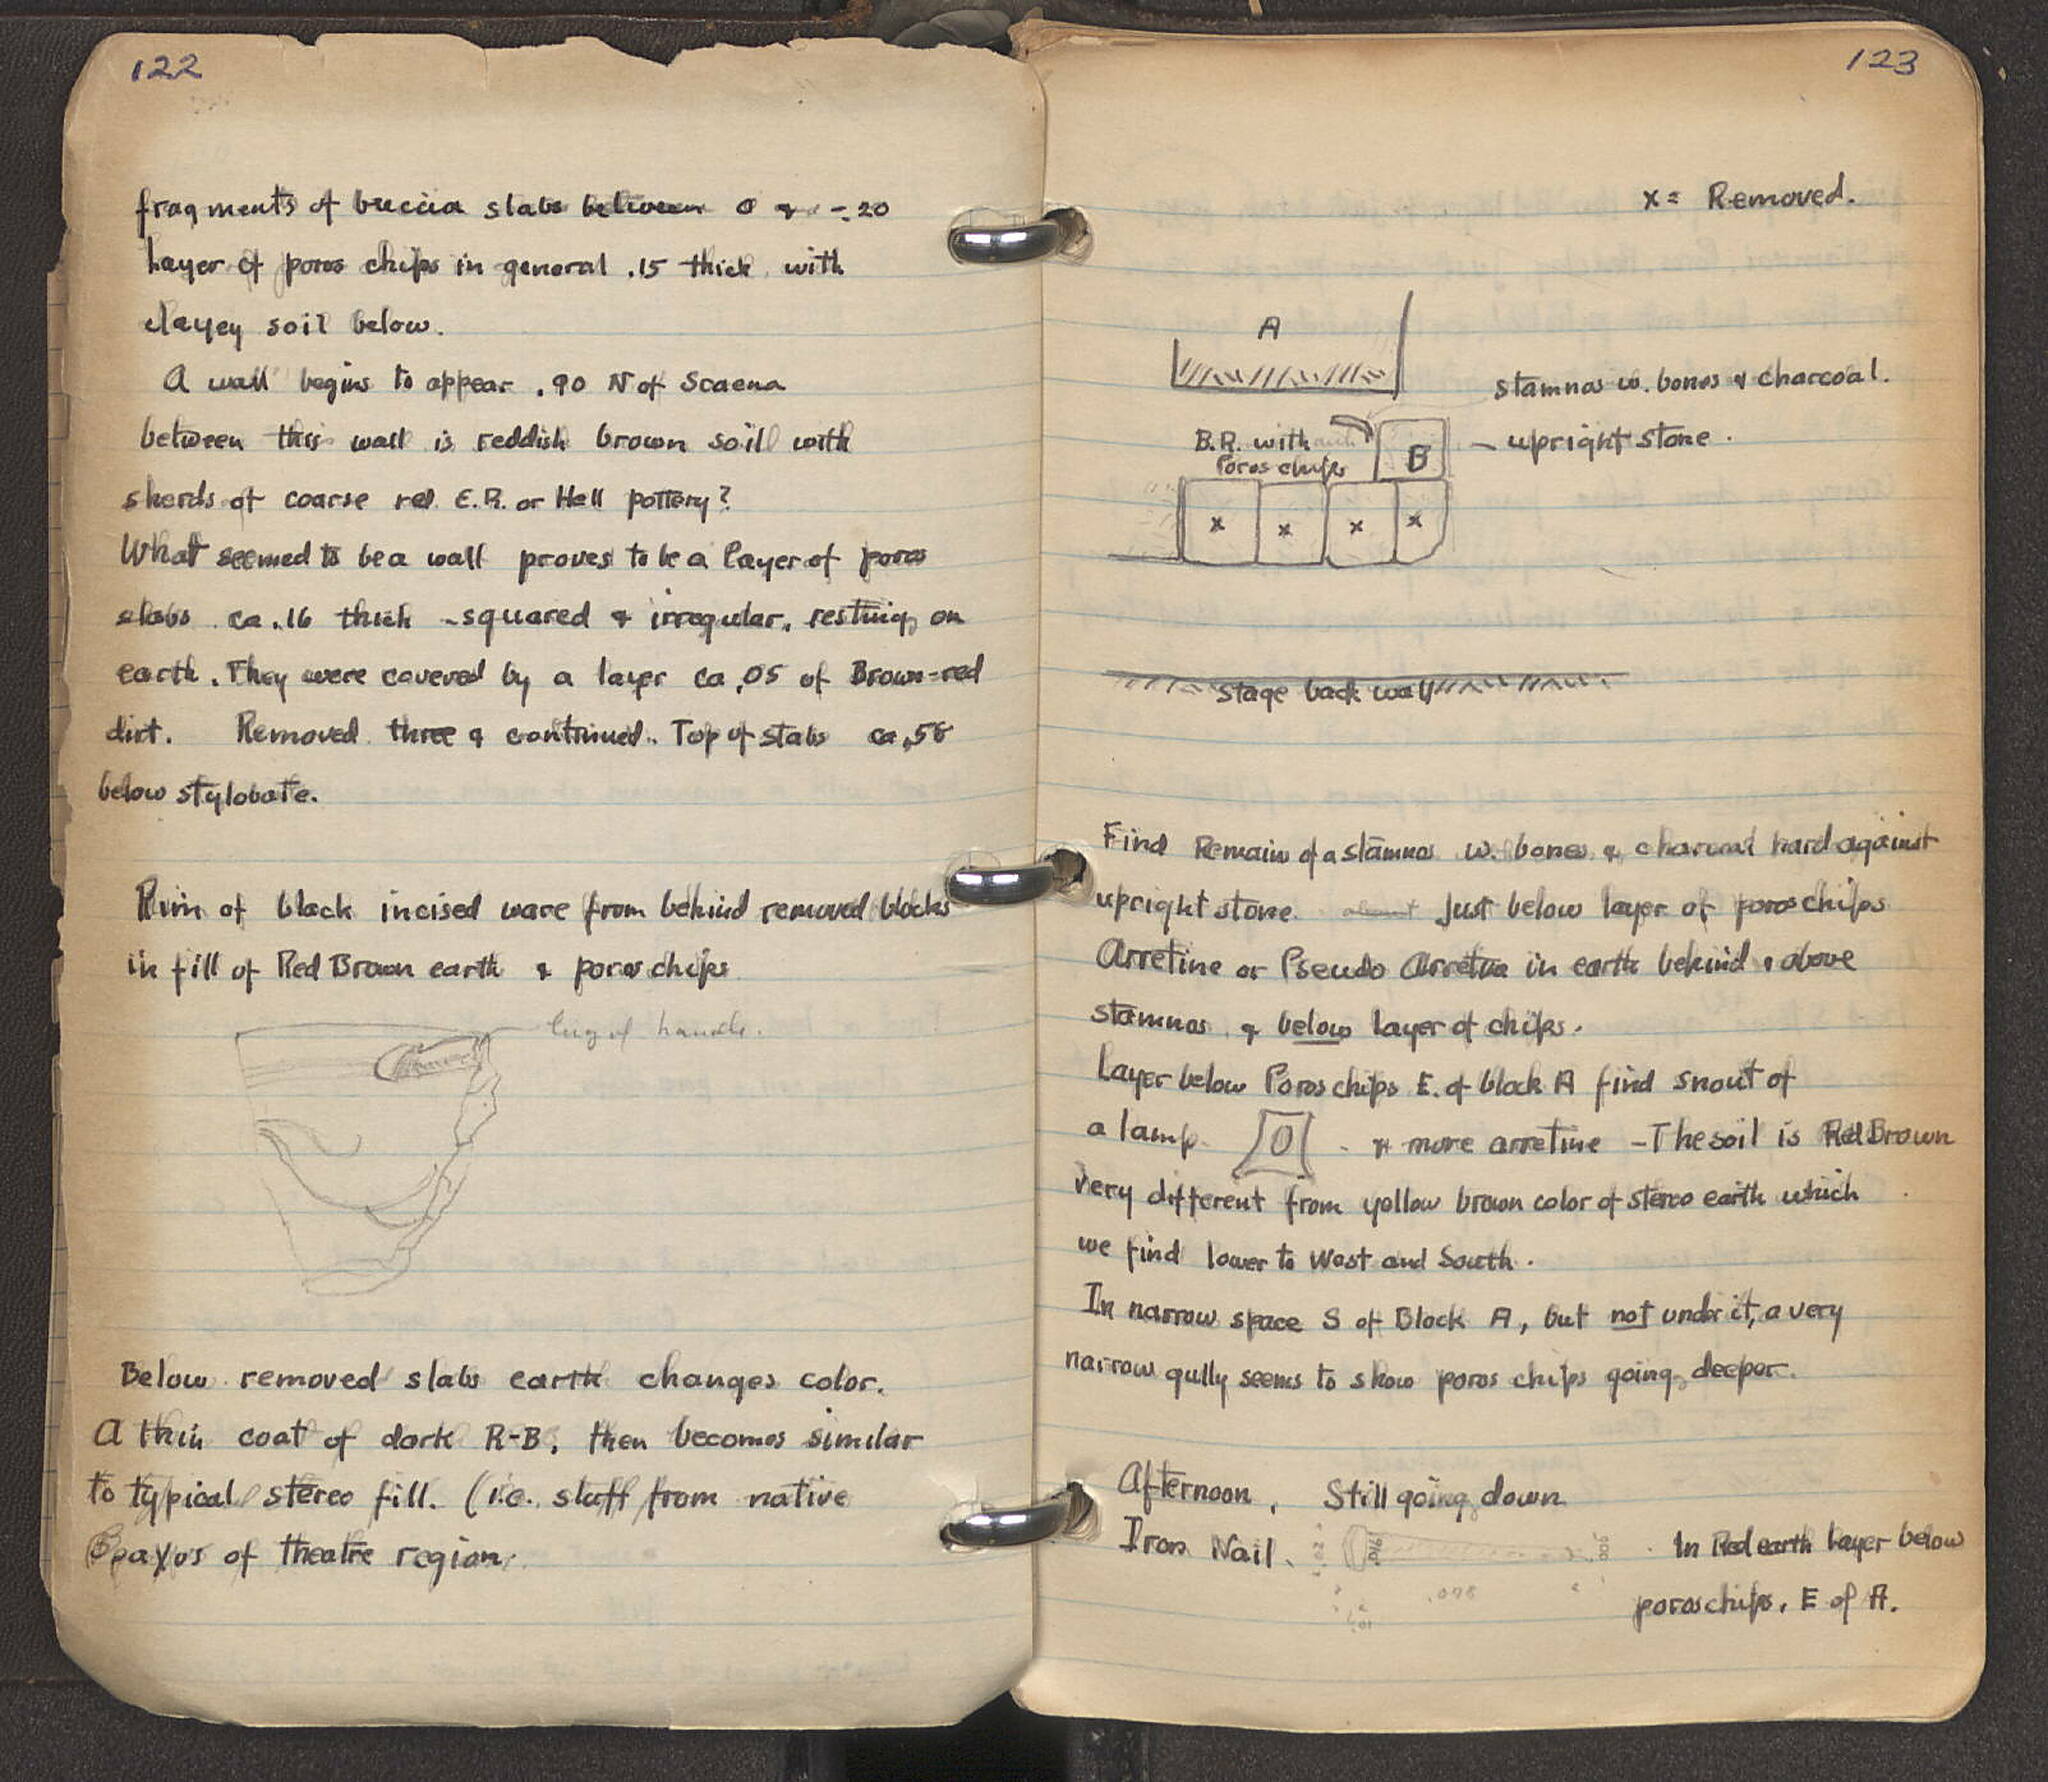 122
fragments of breccia slabs between 0 & -.20
Layer of poros chips in general .15 thick with
clayey soil below.
A wall begins to appear .90 N of Scaena
between this wall is reddish brown soil with
sherds of coarse red E.R. or Hell pottery?
What seemed to be a wall proves to be a layer of poros
slabs ca .16 thick - squared & irregular, resting on
earth. They were covered by a layer ca .05 of Brown-red
dirt. Removed three & continued. Top of slabs ca .58
below stylobate.
Rim of black incised ware from behind removed blocks
in fill of Red Brown earth & poros chips
lug of handle.
Below removed slabs earth changes color.
A thin coat of dark R-B, then becomes similar
to typical stereo fill. (i.e. stuff from native
of theatre region.
123
x = Removed.
A
stamnos w. bones & charcoal.
B.R. with
Poros chips
B
- upright stone.
x x x x
stage back wall
Find Remains of a stamnos w. bones & charcoal hard against
upright stone just below layer of poros chips
Arretine or Pseudo Arretine in earth behind & above
stamnos & below layer of chips.
Layer below Poros chips E. of block A find snout of
a lamp. & more arretine - The soil is Red Brown
very different from yellow brown color of stereo earth which
we find lower to West and South.
In narrow space S of Block A, but not under it, a very
narrow gully seems to show poros chips going deeper.
Afternoon, Still going down
Iron Nail. .016 .006 In Red earth layer below
.098 poros chips, E of A.